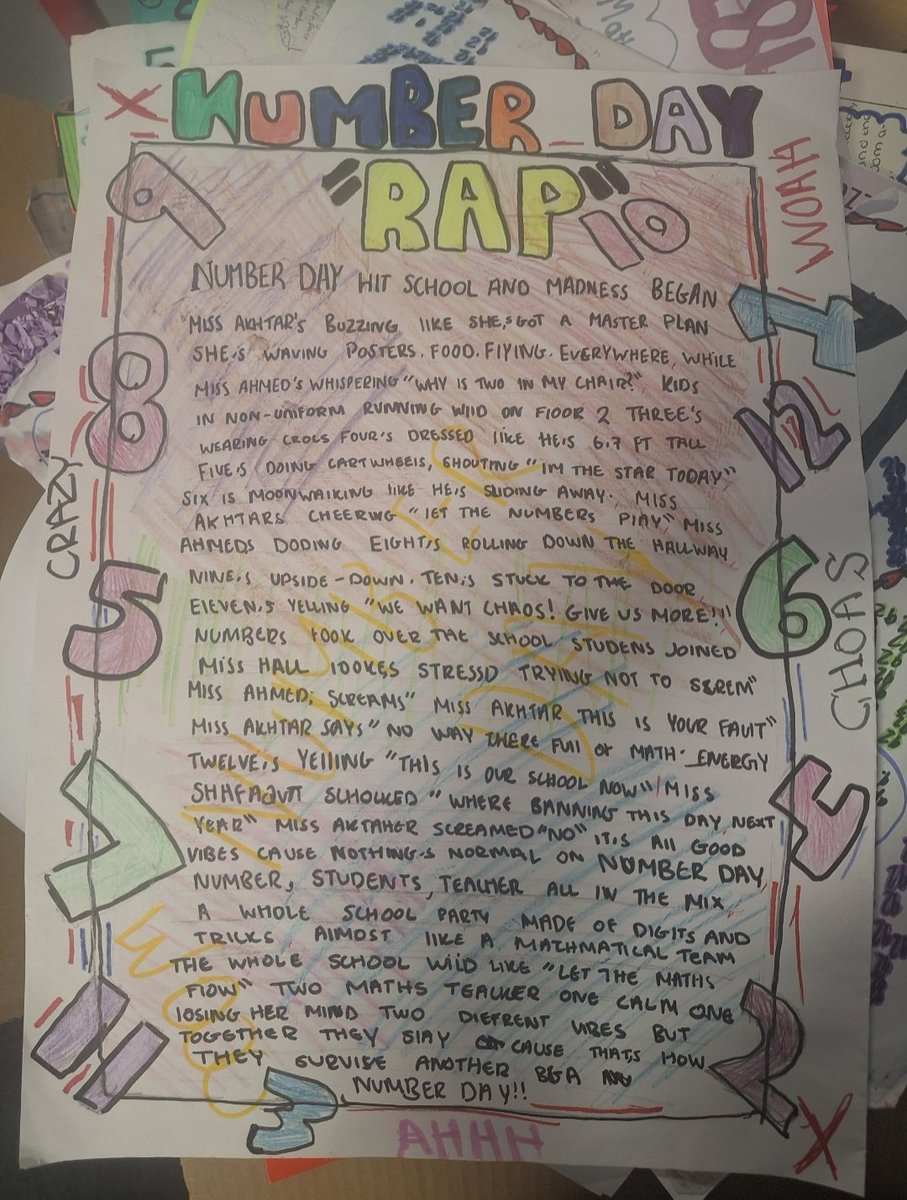 NUMBER DAY
"RAP"
NUMBER DAY HIT SCHOOL AND MADNESS BEGAN
"MISS AKHTAR'S BUZZING LIKE SHE,S GOT A MASTER PLAN
SHE,S WAVING POSTERS. FOOD. FlYING. EVERYWHERE, WHILE
MISS AHMED'S WHISPERING "WHY IS TWO IN MY CHAIR?" KIDS
IN NON-UNIFORM RUNNING WIlD ON FlOOR 2 THREE'S
WEARING CROCS FOUR'S DRESSED lIKE HE,S 6.7 FT TALL
FIVE,S DOING CARTWHEElS, SHOUTING "IM THE STAR TODAY"
SIX IS MOONWAlKING LIKE HE,S SLIDING AWAY. MISS
AKHTARS CHEERING "lET THE NUMBERS PlAY" MISS
AHMEDS DODING EIGHT,S ROLLING DOWN THE HALLWAY
NINE,S UPSIDE-DOWN. TEN,S STUCK TO THE DOOR
ElEVEN,S YELLING "WE WANT CHAOS! GIVE US MORE!!"
NUMBERS TOOK OVER THE SCHOOL STUDENS JOINED
MISS HALL lOOKES STRESSD TRYING NOT TO SCREM"
MISS AHMED; SCREAMS" MISS AKHTAR THIS IS YOUR FAUlT"
MISS AKHTAR SAYS "NO WAY THERE FUll OF MATH-ENERGY
TWELVE,S YEllING "THIS IS OUR SCHOOL NOW"/MISS
SCHOUCED "WHERE BANNING THIS DAY NEXT
YEAR" MISS AKTAHER SCREAMED "NO" IT,S All GOOD
VIBES CAUSE NOTHING,S NORMAL ON NUMBER DAY
NUMBER, STUDENTS, TEACHER ALL IN THE MIX
A WHOLE SCHOOL PARTY MADE OF DIGITS AND
TRICKS AlMOST LIKE A MATHMATICAL TEAM
THE WHOLE SCHOOL WIlD LIKE "LET THE MATHS
FlOW" TWO MATHS TEACHER ONE CALM ONE
lOSING HER MIND TWO DIEFRENT VIBES BUT
TOGETHER THEY SlAY CAUSE THATS HOW
THEY SURVISE ANOTHER
NUMBER DAY!!
NUMBER
DAY
WOO
9
10
1
8
12
5
6
7
3
11
2
3
X
WOAH
CRAZY
CHOAS
AHHH
X